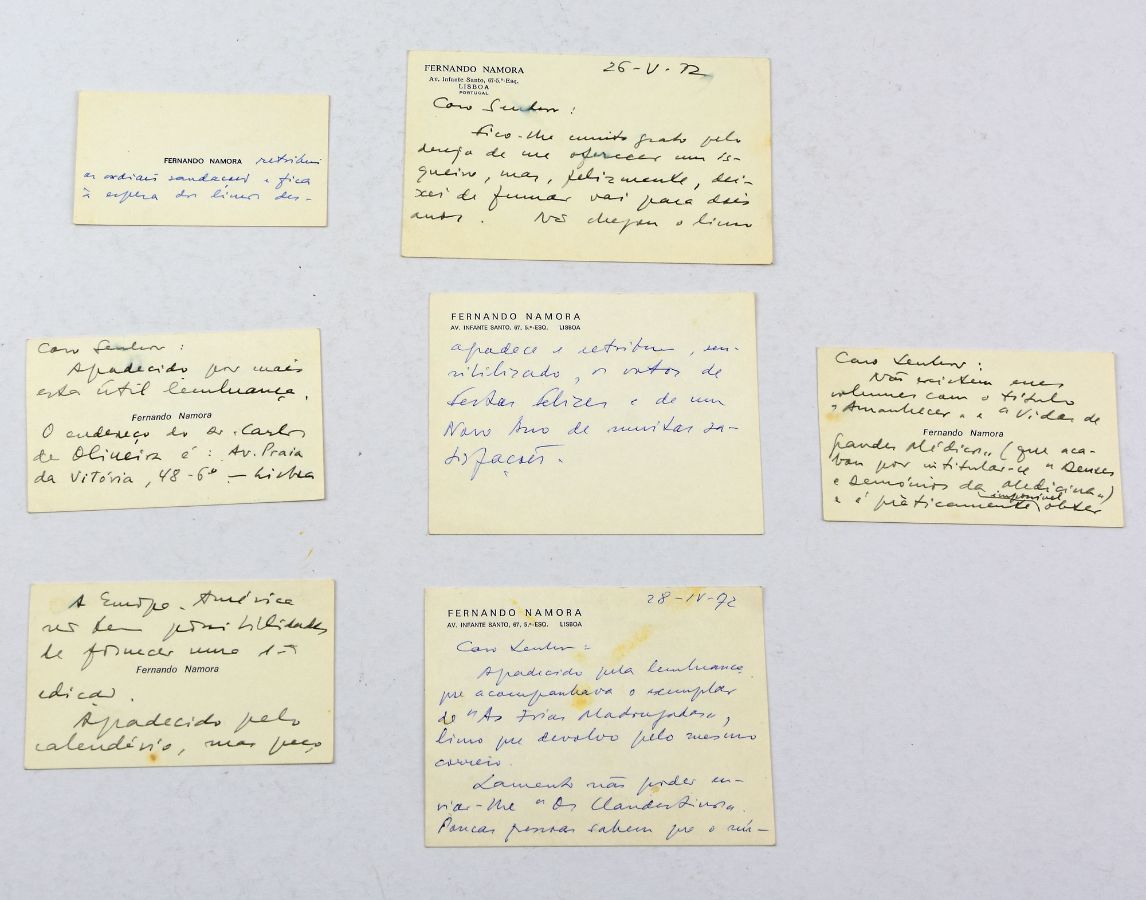 FERNANDO NAMORA retribui
as cordiais saudações e fica
à espera dos livros des-
FERNANDO NAMORA
Av. Infante Santo, 67-5.º-Esq.
LISBOA
PORTUGAL
26-V-72
Caro Senhor:
Fico-lhe muito grato pelo
desejo de me oferecer um is-
queiro, mas, felizmente, dei-
xei de fumar vai para dois
anos. Não chegou o livro
Caro Senhor:
Agradecido por mais
esta útil lembrança.
Fernando Namora
O endereço do Dr. Carlos
de Oliveira é: Av. Praia
da Vitória, 48-6º — Lisboa
FERNANDO NAMORA
AV. INFANTE SANTO, 67, 5.º-ESQ. LISBOA
agradece e retribui, sen-
sibilizado, os votos de
Festas Felizes e de um
Novo Ano de muitas sa-
tisfações.
Caro Senhor:
Não existem meus
volumes com o título
"Amanhecer" e a "Vidas de
Fernando Namora
grandes Médicos" (que aca-
bou por intitular-se "Deuses
e Demónios da Medicina")
e é pràticamente impossível obter
A Europa-América
não tem possibilidades
de fornecer uma 1ª
Fernando Namora
edição.
Agradecido pelo
calendário, mas peço
FERNANDO NAMORA
AV. INFANTE SANTO, 67, 5.º-ESQ. LISBOA
28-IV-72
Caro Senhor:
Agradecido pela lembrança
que acompanhava o exemplar
de "As Frias Madrugadas",
livro que devolvo pelo mesmo
correio.
Lamento não poder en-
viar-lhe "Os Clandestinos".
Poucas pessoas sabem que o nú-